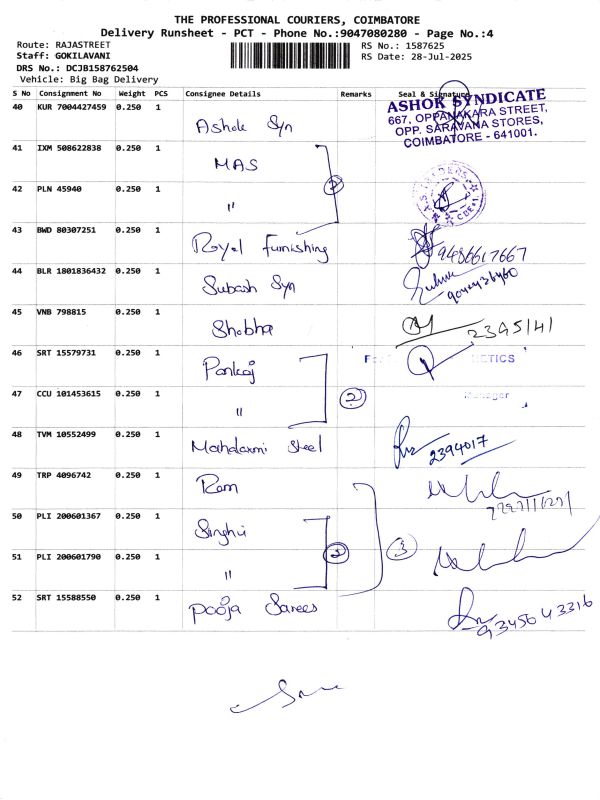 THE PROFESSIONAL COURIERS, COIMBATORE
Delivery Runsheet - PCT - Phone No.:9047080280 - Page No.:4
Route: RAJASTREET
Staff: GOKILAVANI
DRS No.: DCJB158762504
Vehicle: Big Bag Delivery
RS No.: 1587625
RS Date: 28-Jul-2025
S No Consignment No Weight PCS Consignee Details Remarks Seal & Signature
40 KUR 7004427459 0.250 1 Ashok Syn
ASHOK SYNDICATE
667, OPPANAKARA STREET,
OPP. SARAVANA STORES,
COIMBATORE - 641001.
41 IXM 508622838 0.250 1 MAS
42 PLN 45940 0.250 1 " 2
43 BWD 80307251 0.250 1 Royal Furnishing 9486617667
44 BLR 1801836432 0.250 1 Subash Syn
45 VNB 798815 0.250 1 Shobha 2395141
46 SRT 15579731 0.250 1 Pankaj
47 CCU 101453615 0.250 1 " 2 Manager
48 TVM 10552499 0.250 1 Mahalaxmi Steel 2394017
49 TRP 4096742 0.250 1 Ram
50 PLI 200601367 0.250 1 Singhvi
51 PLI 200601790 0.250 1 " 2 3
52 SRT 15588550 0.250 1 Pooja Sarees 9345643316